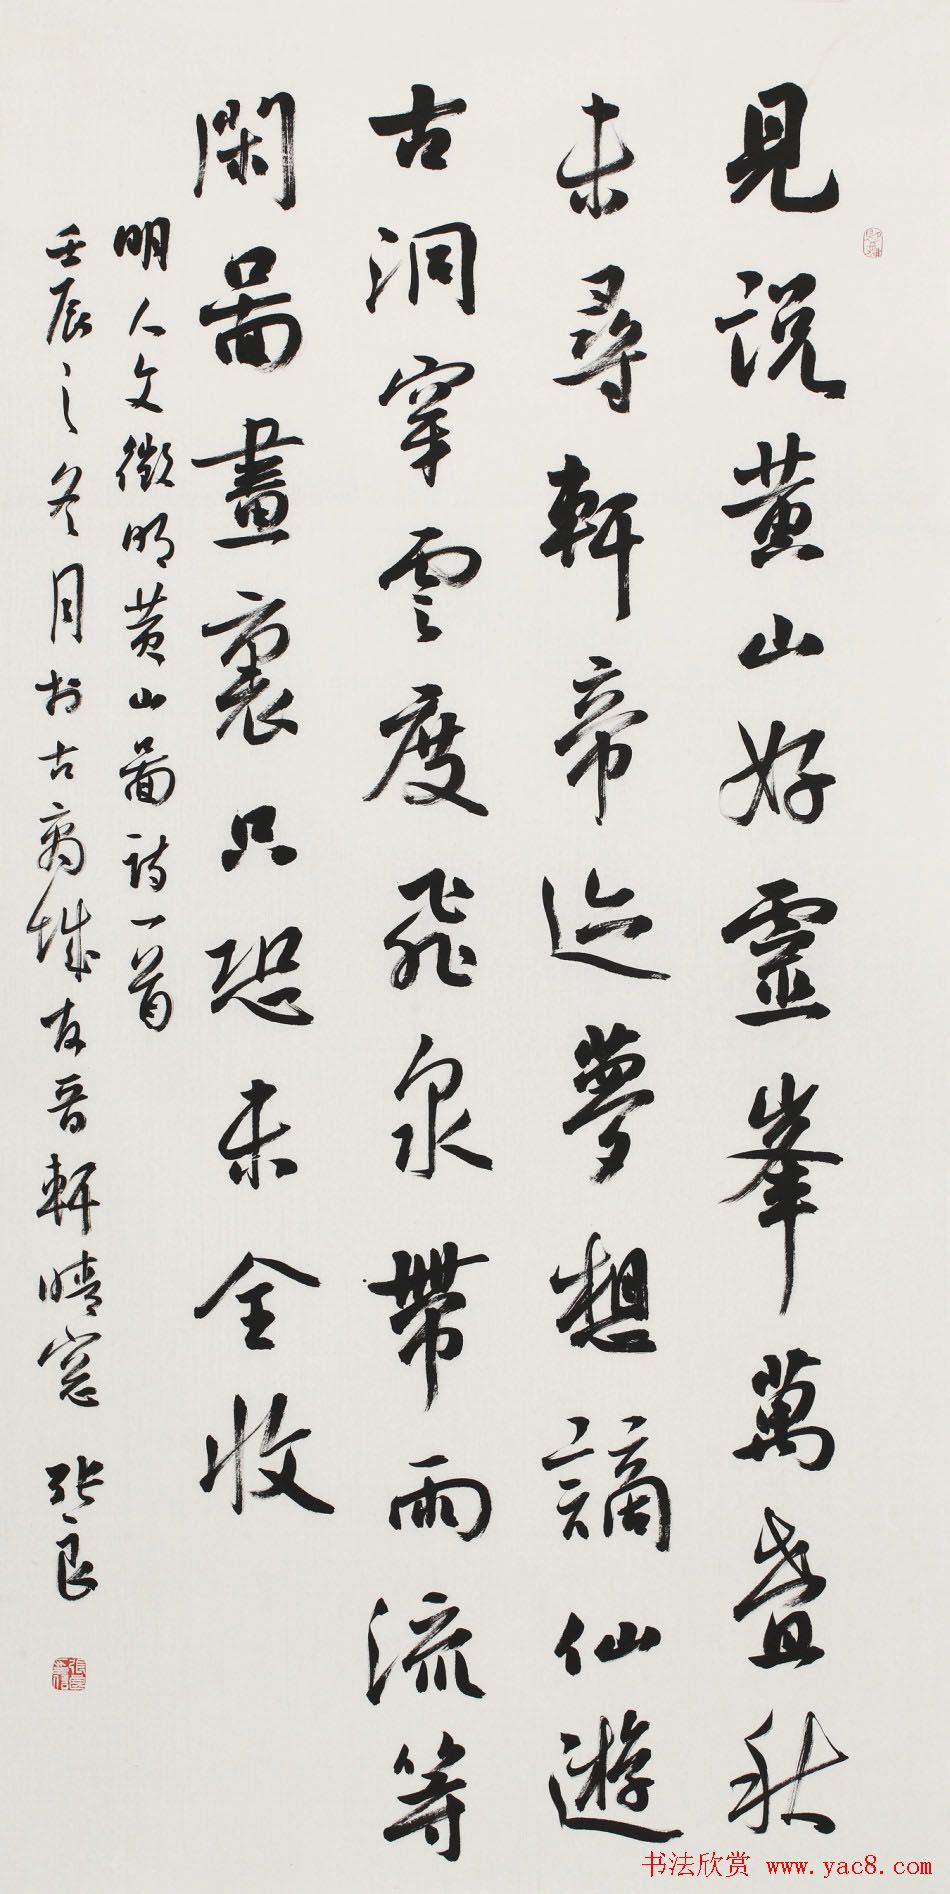 見說黄山好靈峯萬疊秋
未尋軒帝迹夢想謫仙遊
古洞穿雲度飛泉帶雨流等
閑圖畫裏只恐未全收
明人文徵明黄山圖詩一首
壬辰之冬月於古禹城友晋軒晴窓 張良
书法欣赏 www.yac8.com